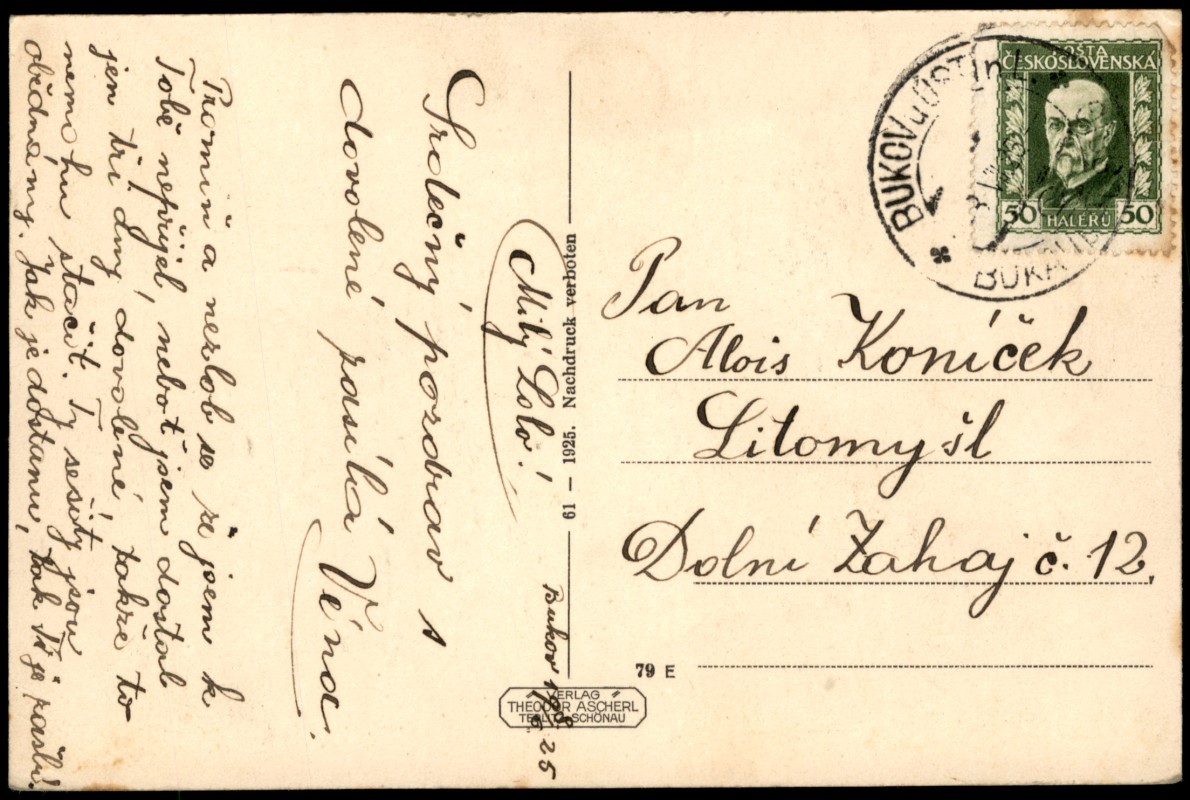 Bukov
25
Milý Loló!
Srdečný pozdrav s
dovolené zasílá Véna.
Promiň a nezlob se že jsem k
Tobě nepřijel, neboť jsem dostal
jen tři dny dovolené, takže to
nemohu stačit. Ty sešity jsou
objednány. Jak je dostanu, tak Ti je zašlu!
61 — 1925. Nachdruck verboten
VERLAG
THEODOR ASCHERL
TEPLITZ SCHÖNAU
79 E
POŠTA
ČESKOSLOVENSKÁ
50 HALÉRŮ 50
BUKOV u ÚSTÍ n. L.
BUKAU
Pan
Alois Koníček
Litomyšl
Dolní Zahaj č. 12.